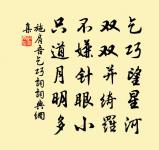 乞巧望星河
双双并绮罗
不嫌针眼小
只道月明多
施肩吾乞巧词词典网
集